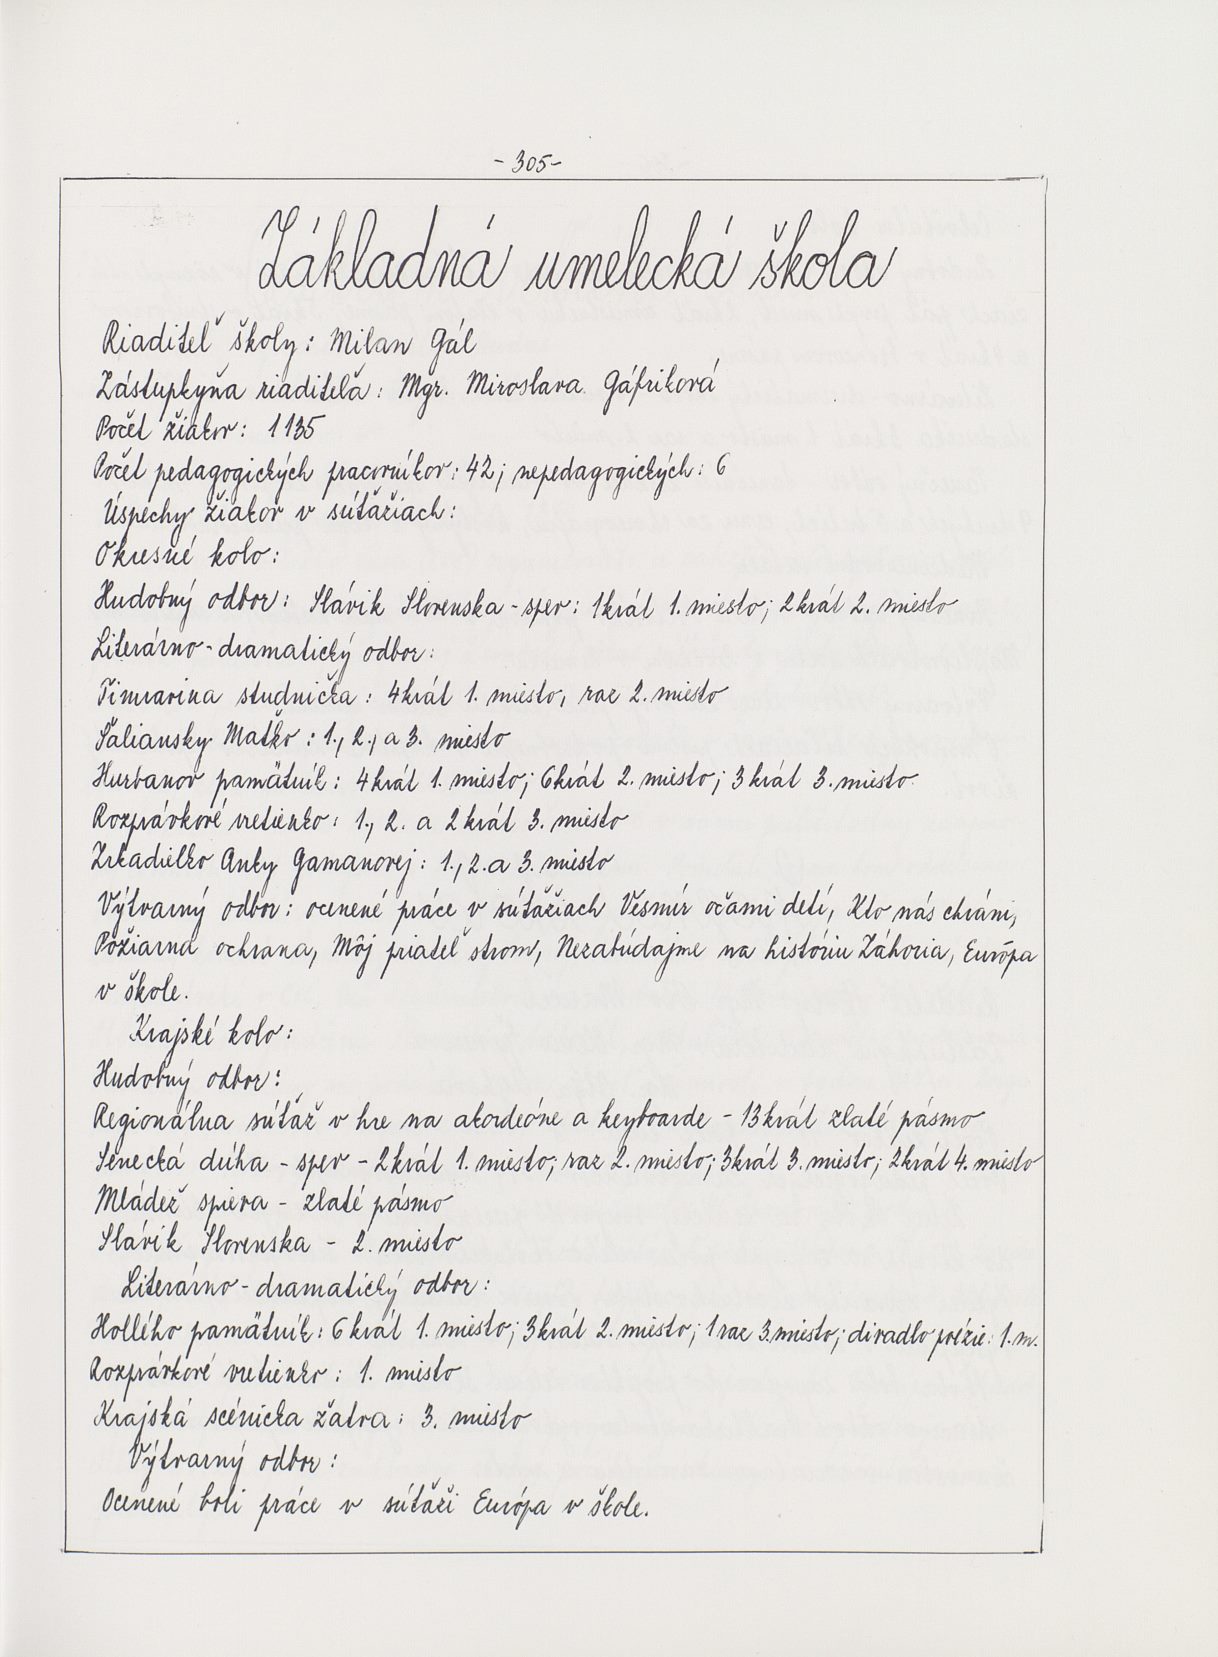 - 305 -
Základná umelecká škola
Riaditeľ školy: Milan Gál
Zástupkyňa riaditeľa: Mgr. Miroslava Gáfriková
Počet žiakov: 1135
Počet pedagogických pracovníkov: 42; nepedagogických: 6
Úspechy žiakov v súťažiach:
Okresné kolo:
Hudobný odbor: Slávik Slovenska - spev: 1krát 1. miesto; 2krát 2. miesto
Literárno-dramatický odbor:
Timravina studnička: 4krát 1. miesto, raz 2. miesto
Šaliansky Maťko: 1., 2., a 3. miesto
Hurbanov pamätník: 4krát 1. miesto; 6krát 2. miesto; 3krát 3. miesto
Rozprávkové vretienko: 1., 2. a 2krát 3. miesto
Zrkadielko Anky Gamanovej: 1., 2. a 3. miesto
Výtvarný odbor: ocenené práce v súťažiach Vesmír očami detí, Kto nás chráni,
Požiarna ochrana, Môj priateľ strom, Nezabúdajme na históriu Záhoria, Európa
v škole.
Krajské kolo:
Hudobný odbor:
Regionálna súťaž v hre na akordeóne a keyboarde - 13krát zlaté pásmo
Senecká dúha - spev - 2krát 1. miesto; raz 2. miesto; 3krát 3. miesto; 2krát 4. miesto
Mládež spieva - zlaté pásmo
Slávik Slovenska - 2. miesto
Literárno-dramatický odbor:
Hollého pamätník: 6krát 1. miesto; 3krát 2. miesto; 1raz 3. miesto; divadlo poézie: 1. m.
Rozprávkové vretienko: 1. miesto
Krajská scénická žatva: 3. miesto
Výtvarný odbor:
Ocenené boli práce v súťaži Európa v škole.